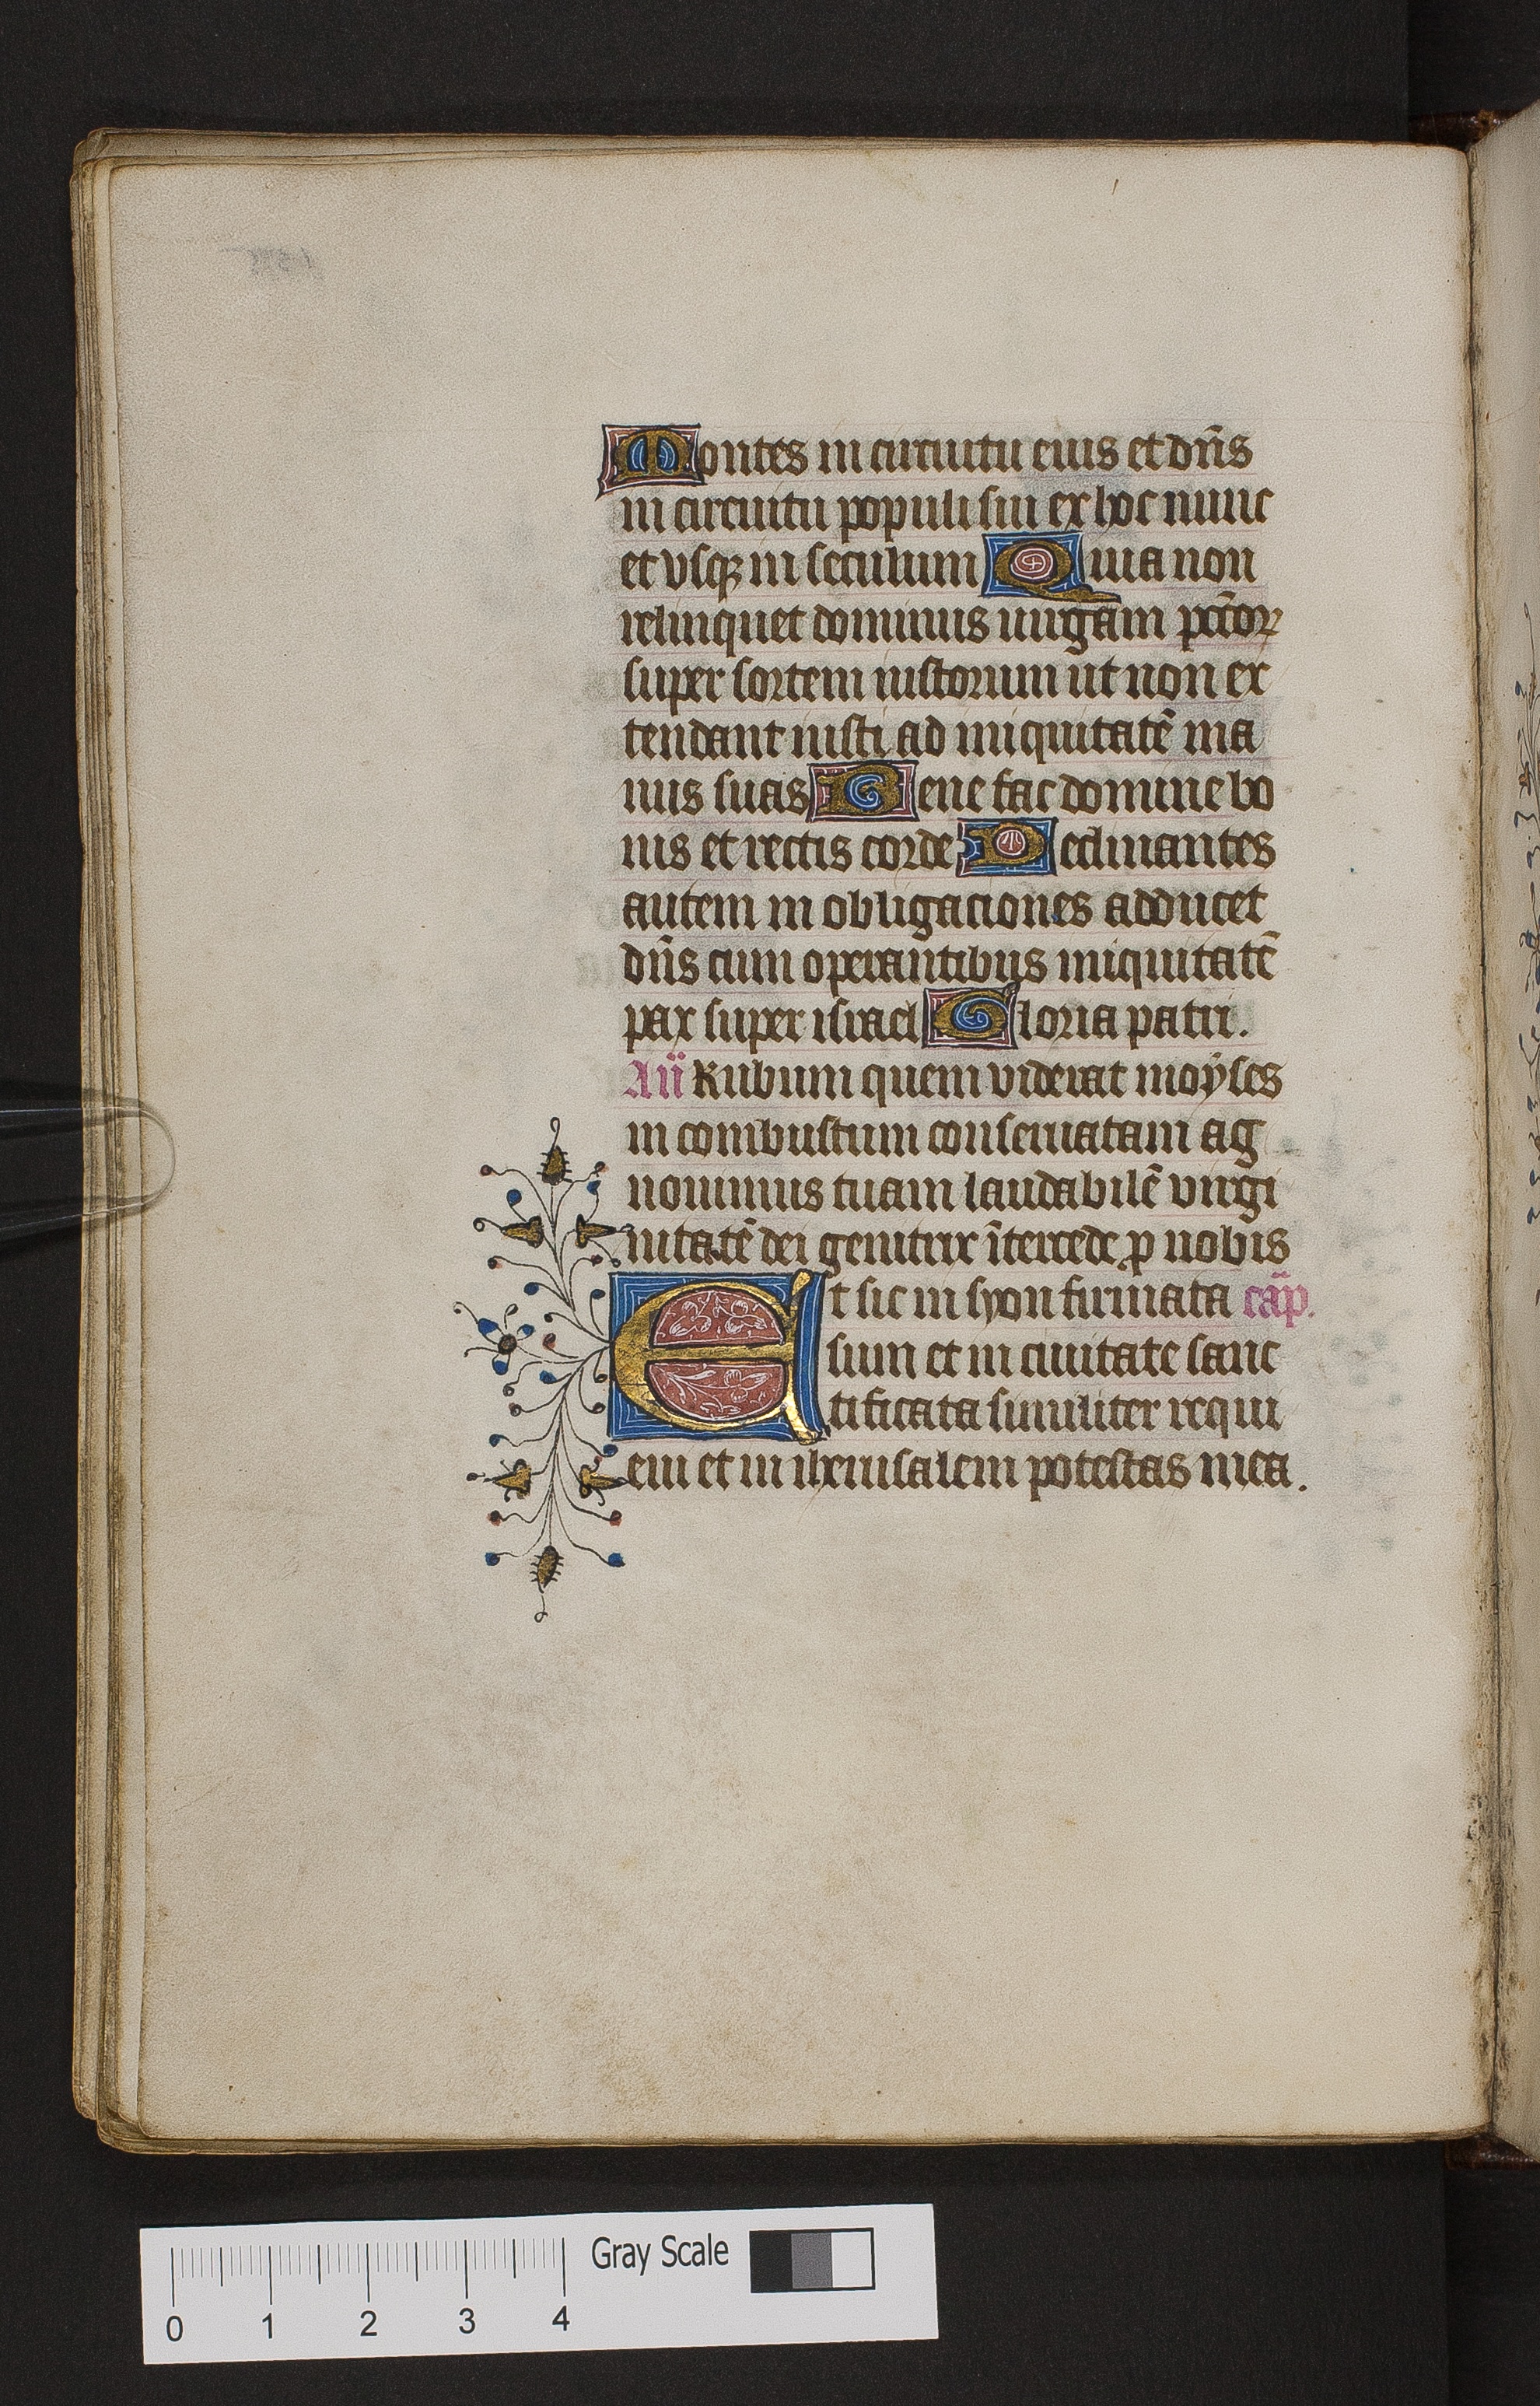 Montes in circuitu eius et dn̄s
in circuitu populi sui ex hoc nunc
et vsqꝫ in seculum Quia non
relinquet dominus uirgam pctōꝝ
super sortem iustorum ut non ex
tendant iusti ad iniquitatē ma
nus suas Bene fac domine bo
nis et rectis corde Declinantes
autem in obligaciones adducet
dn̄s cum operantibus iniquitatē
pax super israel Gloria patri.
An̄ Rubum quem viderat moẏses
in combustum conseruatam ag
nouimus tuam laudabilē virgi
nitatē dei genitrix ītercede ꝓ nobis
Et sic in syon firmata cāp.
sum et in ciuitate sanc
tificata similiter requi
eui et in iherusalem potestas mea.
Gray Scale
0 1 2 3 4